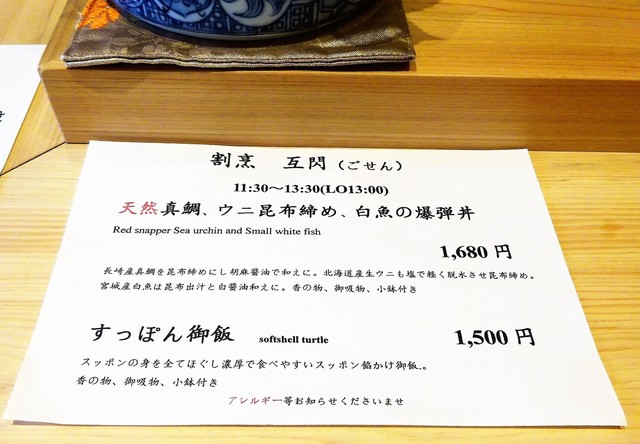 割烹　互閃（ごせん）
11:30～13:30(LO13:00)
天然真鯛、ウニ昆布締め、白魚の爆弾丼
Red snapper Sea urchin and Small white fish
1,680 円
長崎産真鯛を昆布締めにし胡麻醤油で和えに。北海道産生ウニも塩で軽く脱水させ昆布締め。
宮城産白魚は昆布出汁と白醤油和えに。香の物、御吸物、小鉢付き
すっぽん御飯 softshell turtle 1,500 円
スッポンの身を全てほぐし濃厚で食べやすいスッポン餡かけ御飯.。
香の物、御吸物、小鉢付き
アレルギー等お知らせくださいませ